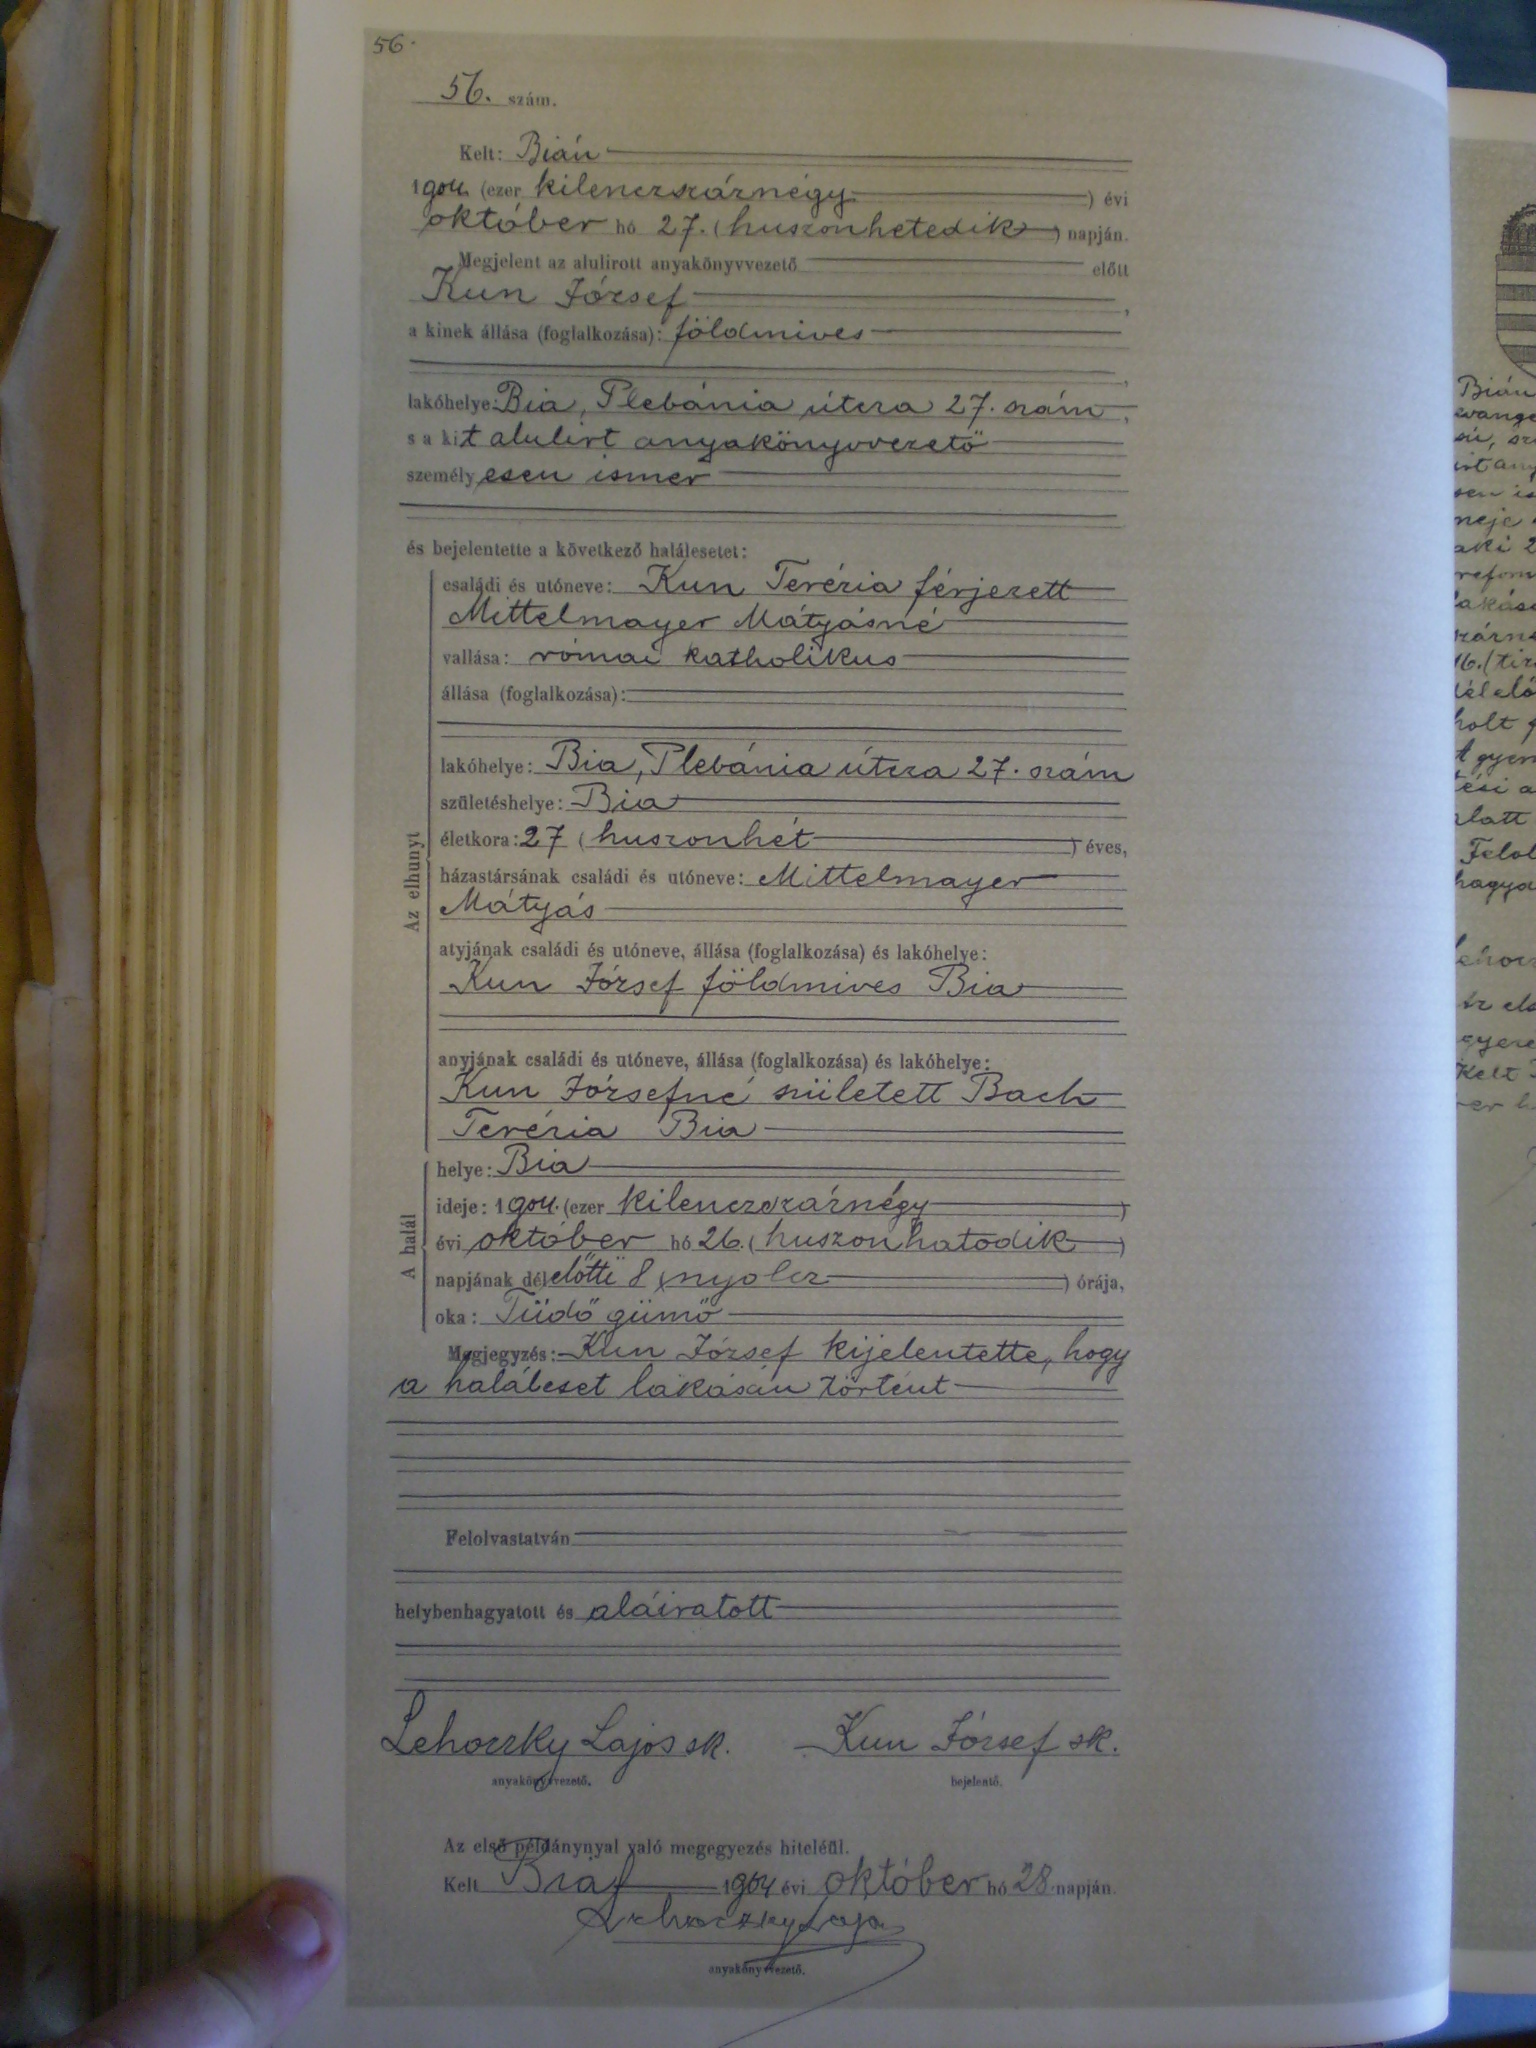 56.
56. szám.
Kelt: Bián
1904. (ezer kilenczszáznégy ) évi
október hó 27. (huszonhetedik ) napján.
Megjelent az alulirott anyakönyvvezető előtt
Kun József ,
a kinek állása (foglalkozása): földmives
,
lakóhelye: Bia, Plebánia útcza 27. szám ,
s a kit alulirt anyakönyvvezető
személyesen ismer
és bejelentette a következő halálesetet:
Az elhunyt
családi és utóneve: Kun Terézia férjezett
Mittelmayer Mátyásné
vallása: római katholikus
állása (foglalkozása):
lakóhelye: Bia, Plebánia útcza 27. szám
születéshelye: Bia
életkora: 27 (huszonhét ) éves,
házastársának családi és utóneve: Mittelmayer
Mátyás
atyjának családi és utóneve, állása (foglalkozása) és lakóhelye:
Kun József földmives Bia
anyjának családi és utóneve, állása (foglalkozása) és lakóhelye:
Kun Józsefné született Bach
Terézia Bia
A halál
helye: Bia
ideje: 1904. (ezer kilenczszáznégy )
évi október hó 26. (huszonhatodik )
napjának délelőtti 8 (nyolcz ) órája,
oka: Tüdő gümő
Megjegyzés: Kun József kijelentette, hogy
a haláleset lakásán történt
Felolvastatván
helybenhagyatott és aláiratott
Lehoczky Lajos sk. Kun József sk.
anyakönyvvezető. bejelentő.
Az első példánynyal való megegyezés hiteléül.
Kelt Bián 1904 évi október hó 28 napján.
Lehoczky Lajos
anyakönyvvezető.
Bián